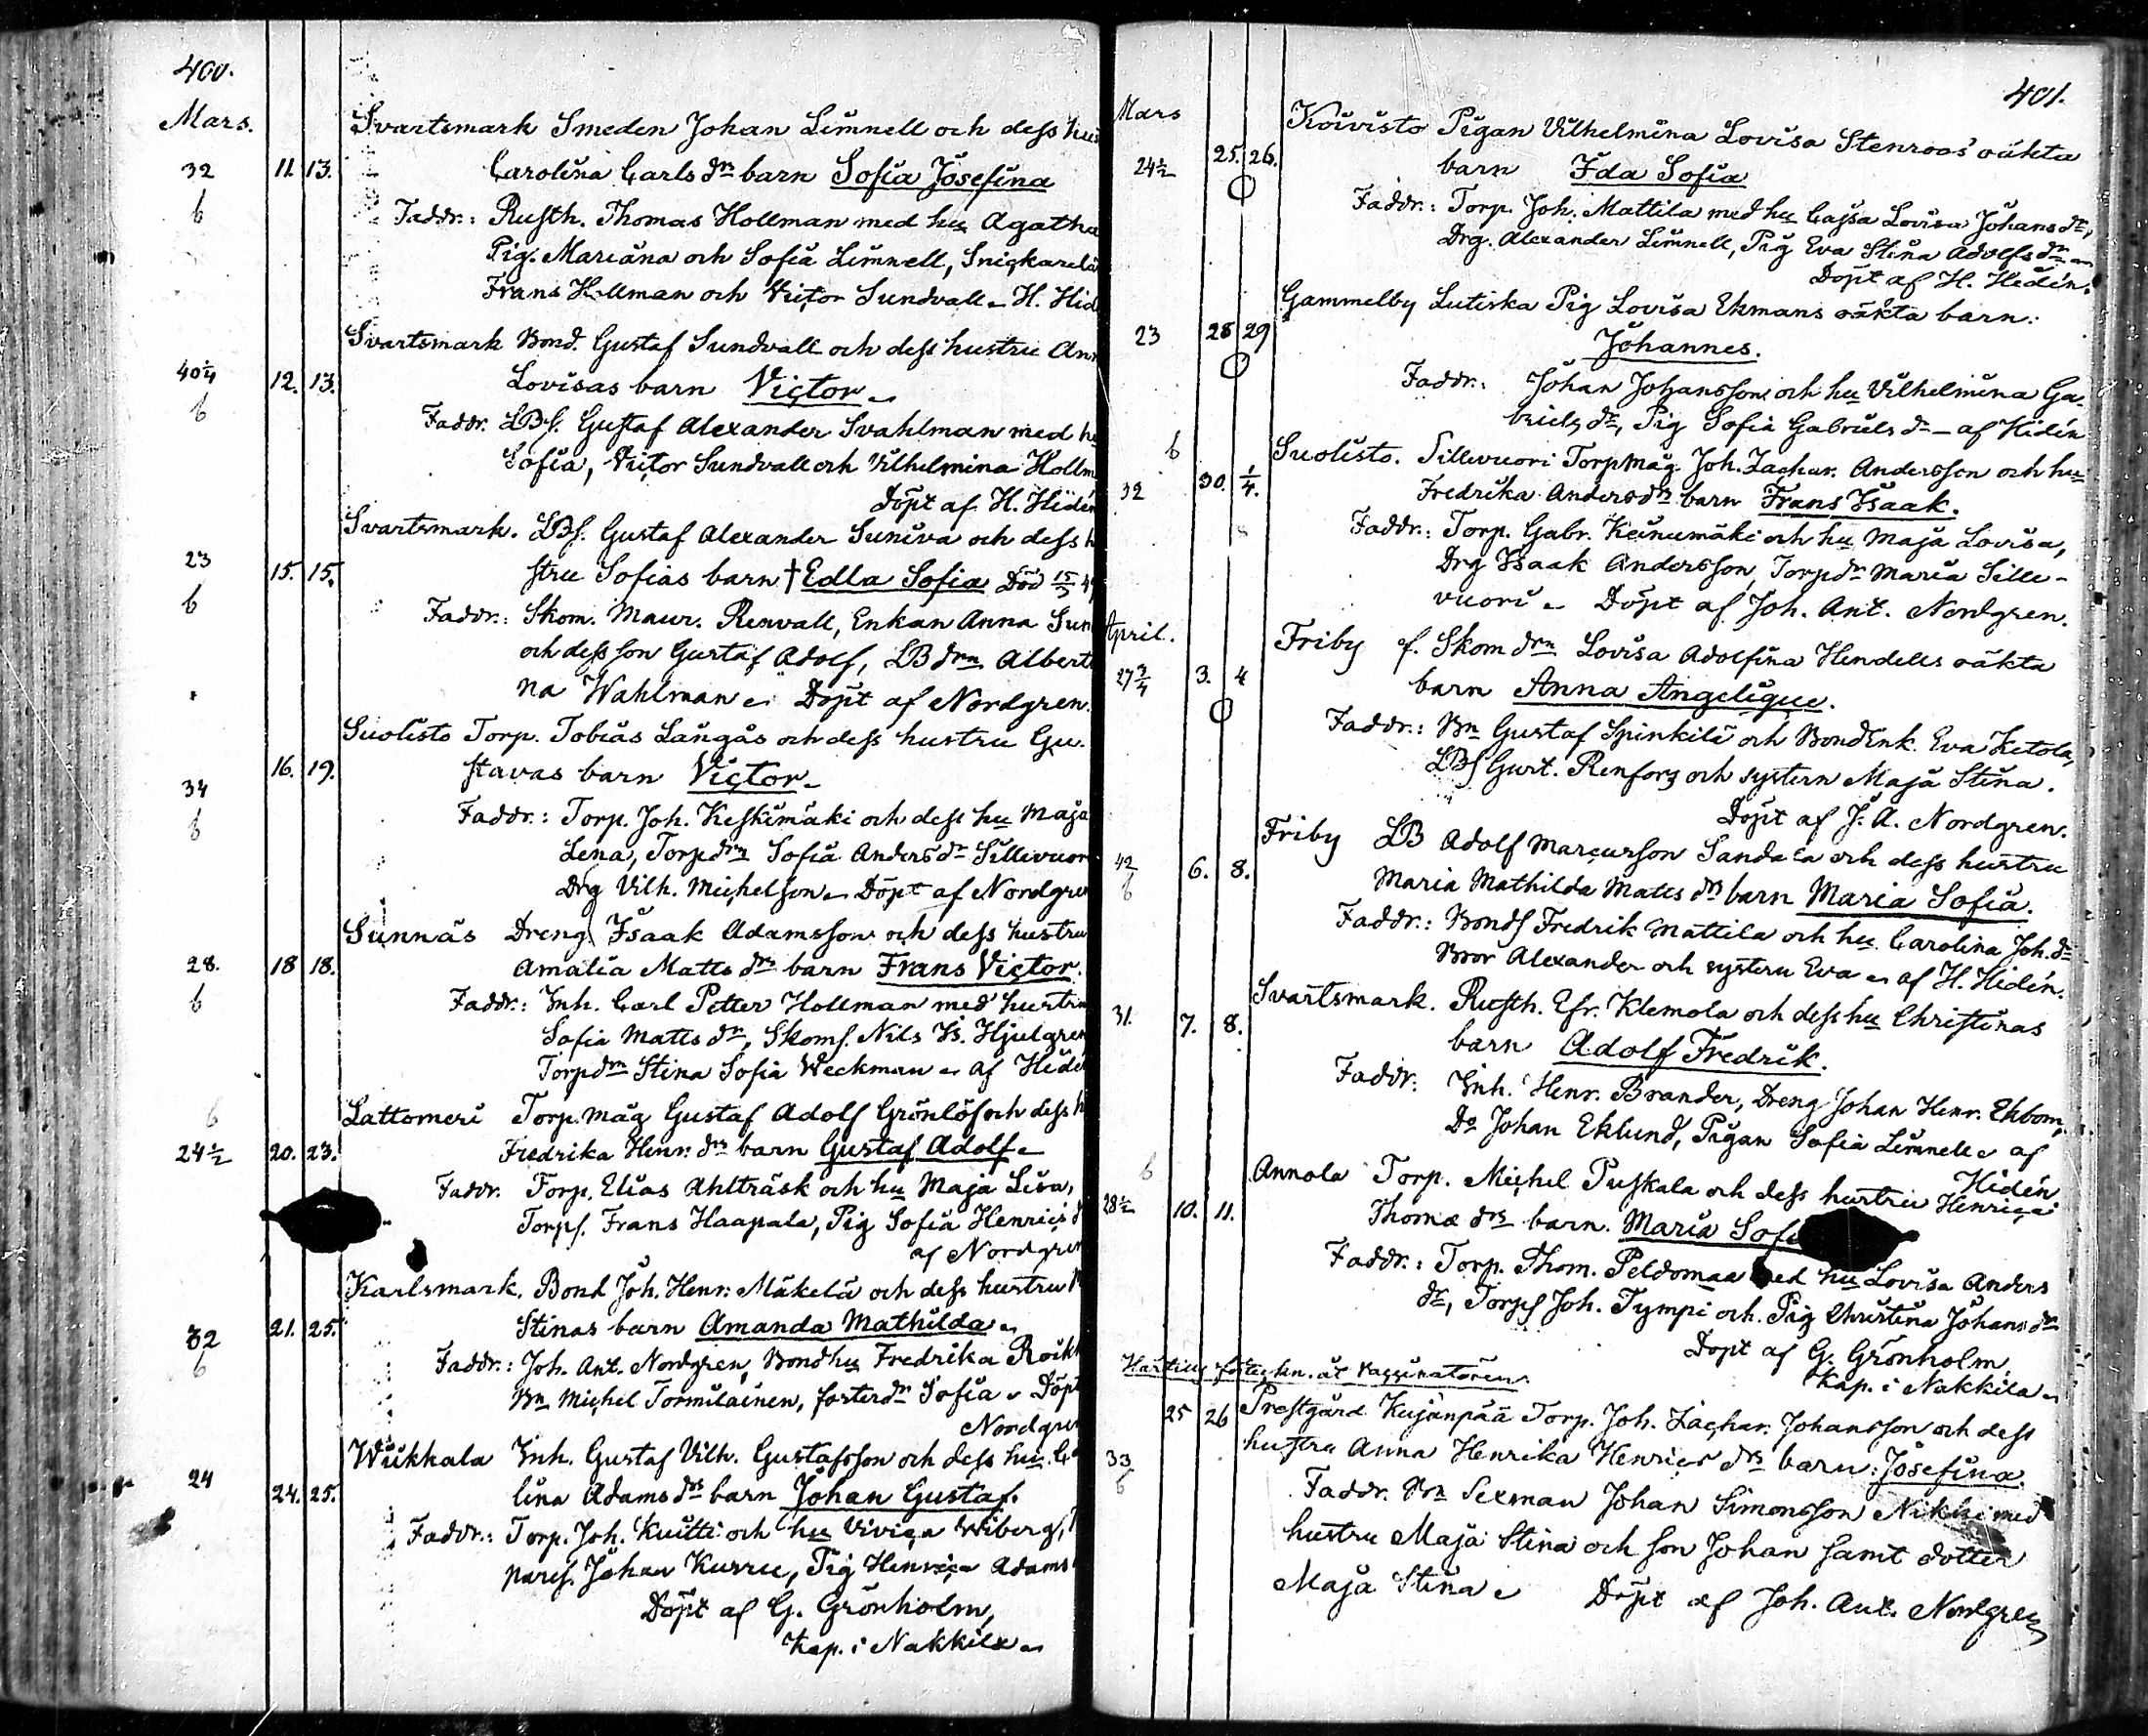 400.
Mars.
Svartsmark Smeden Johan Limnell och dess hus
32 11. 13. Carolina Carls dr barn Sofia Josefina
b Faddr.: Rusth. Thomas Hollman med hu Agatha
Pig. Mariana och Sofia Limnell, Snickarelä
Frans Hollman och Victor Sundvall H. Hid
Svartsmark Bond. Gustaf Sundvall och dess hustru An
40 1/4 12. 13. Lovisas barn Victor
b Faddr. LBs. Gustaf Alexander Svahlman med h
Sofia, Victor Sundvall och Vilhelmina Hollm
Döpt af H. Hidén
Svartsmark. LBs. Gustaf Alexander Suniva och dess h
23 15. 15. stru Sofias barn † Edla Sofia Död 15/5
b Faddr.: Skom. Maur. Renvall, Enkan Anna Sun
och dess son Gustaf Adolf, LB drn Alberti
na Wahlman Döpt af Nordgren.
Suolisto Torp. Tobias Långås och dess hustru Gu-
34 16. 19. stavas barn Victor
b Faddr.: Torp. Joh. Keskimäki och dess hu Maja
Lena, Torpdrn Sofia Anders dr Sillivuor
Drg Vilh. Michelson Döpt af Nordgre
Sunnäs Dreng Isaak Adamsson och dess hustru
28. 18 18. Amalia Matts drs barn Frans Victor.
b Faddr.: Inh. Carl Petter Hollman med hustru
Sofia Matts dr, Skoms. Nils Is. Hjulgren
Torpdrn Stina Sofia Weckman af Hidé
b Lattomeri Torp. måg Gustaf Adolf Grönlöf och dess h
24 1/2 20. 23. Fredrika Henr. drs barn Gustaf Adolf
Faddr. Torp. Elias Ahlträsk och hu Maja Lisa,
Torps. Frans Haapala, Pig Sofia Henrics d
af Nordgre
Karlsmark. Bond Joh. Henr. Mäkelä och dess hustru
32 21. 25. Stinas barn Amanda Mathilda
b Faddr.: Joh. Ant. Nordgren, Bondhu Fredrika Roik
Bn Michel Tormilainen, fosterdr Sofia Döpt
Nordgre
Wiikkala Inh. Gustaf Vilh. Gustafsson och dess hu. Ca
24 24. 25. lina Adams drs barn Johan Gustaf.
Faddr.: Torp. Joh. Kuitti och hu Vivica Wiberg,
pares. Johan Kurru, Pig Henrica Adams
Döpt af G. Grönholm,
Kap. i Nakkila
401.
Mars
Koivisto Pigan Vilhelmina Lovisa Stenroos' oäkta
24 1/2 25. 26. barn Ida Sofia
Faddr.: Torp. Joh. Mattila med hu Cajsa Lovisa Johans dr,
Drg. Alexander Limnell, Pig Eva Stina Adolfs dr
Döpt af H. Hidén.
Gammelby Lutiska Pig Lovisa Ekmans oäkta barn:
23 28 29 Johannes.
Faddr. Johan Johansson och hu Vilhelmina Ga-
briels dr, Pig Sofia Gabriels dr af Hidén
b Suolisto. Sillivuori Torpmåg Joh. Zachar. Andersson och hu
32 30. 1/4. Fredrika Anders drs barn Frans Isaak.
Faddr.: Torp. Gabr. Keinumäki och hu Maja Lovisa,
Drg Isaak Andersson, Torpdr Maria Silli-
vuori Döpt af Joh. Ant. Nordgren.
April.
Friby f. Skom drn Lovisa Adolfina Hendells oäkta
27 3/4 3. 4 barn Anna Angelique.
Faddr.: Bn Gustaf Spinkilä och BondEnk. Eva Ketola,
LBs Gust. Renfors och systern Maja Stina.
Döpt af J. A. Nordgren.
Friby LB Adolf Marcusson Sandala och dess hustru
42 6. 8. Maria Mathilda Matts drs barn Maria Sofia.
b Faddr.: Bonds Fredrik Mattila och hu Carolina Joh. dr
Bror Alexander och systern Eva af H. Hidén.
Svartsmark. Rusth. Efr. Klemola och dess hu Christinas
31. 7. 8. barn Adolf Fredrik.
Faddr: Inh. Henr. Brander, Dreng Johan Henr. Ekbom,
Do Johan Eklund, Pigan Sofia Limnell af
Hidén
b Annola Torp. Michel Puskala och dess hustru Henrica
28 1/2 10. 11. Thomæ drs barn. Maria Sofi
Faddr.: Torp. Thom. Peldomaa med hu Lovisa Anders
dr, Torps Joh. Tympi och Pig Christina Johans dr
Döpt af G. Grönholm,
Kap. i Nakkila
förteckn. åt vaccinatören.
25 26 Prestgård Kujanpää Torp. Joh. Zachar. Johansson och dess
33 hustru Anna Henrika Henrics drs barn: Josefina.
b Faddr. Bn Sexman Johan Simonsson Nikki med
hustru Maja Stina och son Johan samt dotter
Maja Stina Döpt af Joh. Ant. Nordgren